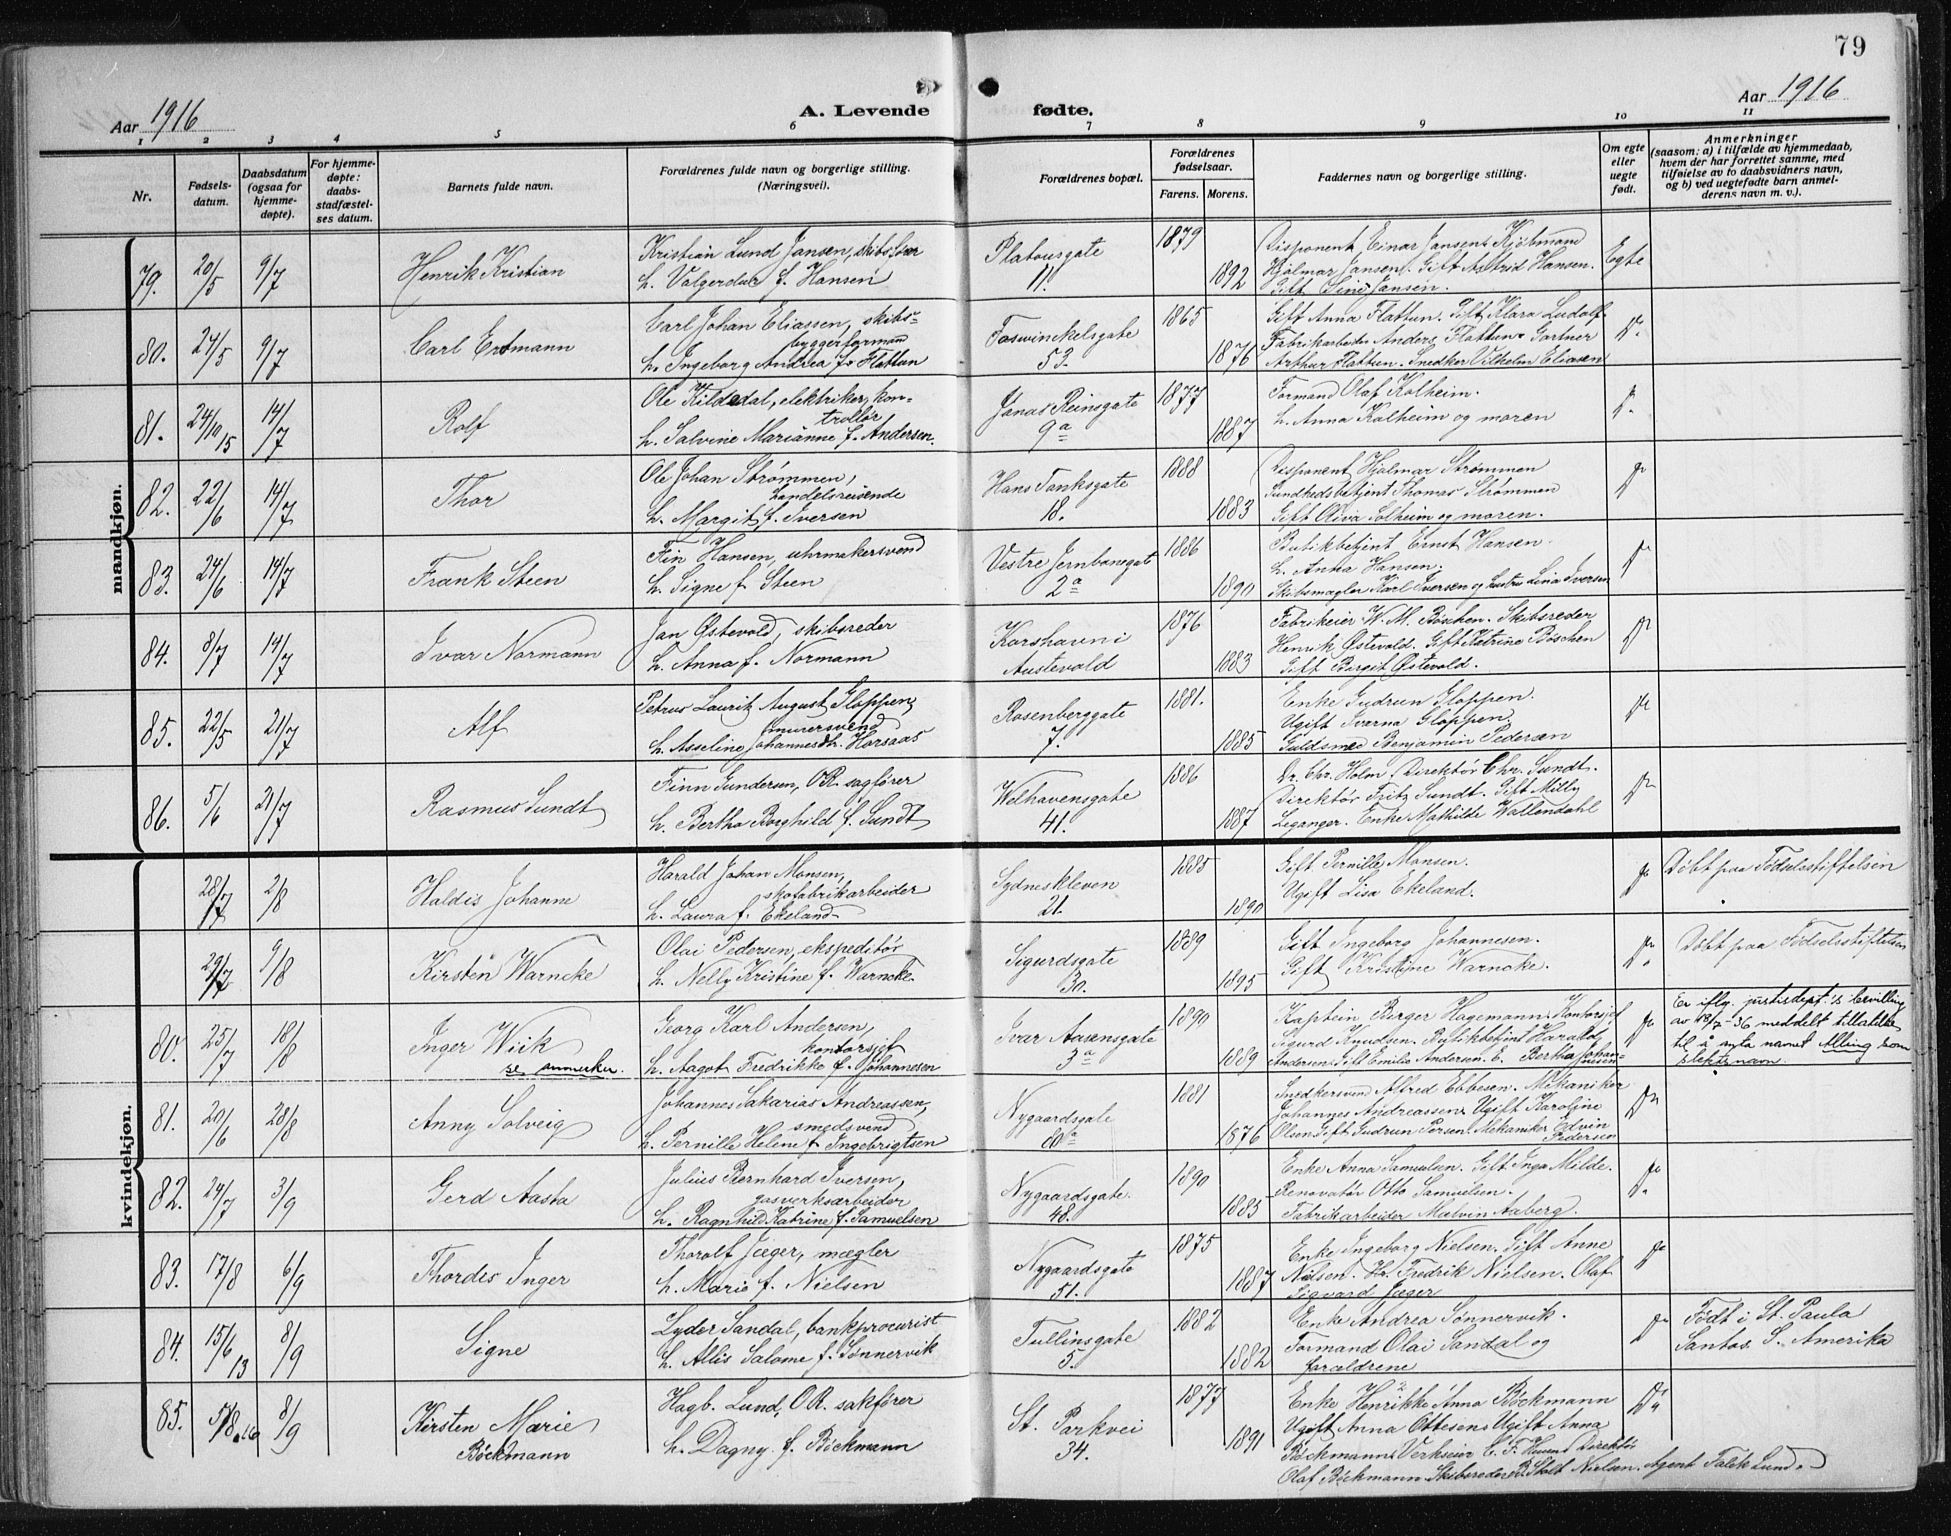 79
Aar 1916
A. Levende fødte.
Aar 1916
1 2 3 4 5 6 7 8 9 10 11
Nr.
Fødselsdatum.
Daabsdatum (ogsaa for hjemmedøpte).
For hjemmedøpte: daabsstadfæstelses datum.
Barnets fulde navn.
Forældrenes fulde navn og borgerlige stilling. (Næringsvei).
Forældrenes bopæl.
Forældrenes fødselsaar.
Farens. Morens.
Faddernes navn og borgerlige stilling.
Om egte eller uegte født.
Anmerkninger (saasom: a) i tilfælde av hjemmedaab, hvem der har forrettet samme, med tilføielse av to daabsvidners navn, og b) ved uegtefødte barn anmelderens navn m. v.).
mandkjøn.
79. 20/5 9/7 Henrik Kristian
Kristian Lund Jansen, skibsfører
h. Valgerda f. Hansen
Platousgate
11.
1879
1892
Disponent Einar Jansen. Kjøbmand
Hjalmar Jansen. Gift Astrid Hansen.
Gift Jansen.
Egte
80. 24/5 9/7 Carl Ertmann
Carl Johan Eliassen, skibs-
byggerforman
h. Ingeborg Andrea f. Flattun
Foswinckelsgate
53.
1865
1876
Gift Anna Flattun. Gift Klara Ludolf.
Fabrikarbeider Anders Flattun. Gartner
Arthur Flattun. Snedker Vilhelm Eliasen
81. 24/10 15 14/7 Rolf
Ole Kildedal, elektriker, kon-
trollør
h. Salvine Marianne f. Andersen.
Jonas Reinsgate
9a
1877
1887
Formand Olaf Kalheim.
h. Anna Kalheim og moren
82. 22/6 14/7 Thor
Ole Johan Strømmen,
handelsreisende
h. Margit f. Iversen
Hans Tanksgate
18.
1888
1883
Disponent Hjalmar Strømmen
Sundhedsbetjent Thomas Strømmen
Gift Oliva Solheim og moren.
83. 24/6 14/7 Frank Steen
Fin Hansen, uhrmakersvend
h. Signe f. Steen
Vestre Jernbanegate
2a
1886
1890
Butikbetjent Ernst Hansen.
h. Anna Hansen.
Skibsmægler Karl Iversen og hustru Lina Iversen
84. 8/7 14/7 Ivar Normann
Jan Østevold, skibsreder
h. Anna f. Normann
Korshavn i
Austevold
1876
1883
Fabrikeier W. M. Böschen. Skibsreder
Henrik Østevold. Gift Katrine Böschen
Gift Borgit Østevold.
85. 22/5 21/7 Alf
Petrus Laurits August Gloppen,
murersvend
h. Asseline Johannesdtr. Horsaas
Rosenberggate
7.
1881.
1885
Enke Gudrun Gloppen.
Ugift Sverna Gloppen.
Guldsmed Benjamin Pedersen
86. 5/6 21/7 Rasmus Sundt
Finn Gundersen, O.R. sagfører
h. Bertha Borghild f. Sundt
Welhavensgate
41.
1886
1887
Dr. Chr. Holm. Direktør Chr. Sundt.
Direktør Fritz Sundt. Gift Milly
Leganger. Enke Mathilde Wallendahl
kvindekjøn.
28/7 2/8 Haldis Johanne
Harald Johan Monsen,
skofabrikarbeider
h. Laura f. Ekeland
Sydneskleven
21.
1885
1890
Gift Pernille Monsen.
Ugift Lisa Ekeland.
Døbt paa Fødselsstiftelsen
29/7 9/8 Kirsten Warncke
Olai Pedersen, ekspeditør
h. Nelly Kristine f. Warncke
Sigurdsgate
30.
1889
1895
Gift Ingeborg Johannesen.
Gift Kristine Warncke.
Døbt paa Fødselsstiftelsen
80. 25/7 18/8 Inger Wiik
se anmerkn.
Georg Karl Andersen,
kontorsjef
h. Aagot Fredrikke f. Johannesen
Ivar Aasensgate
3a
1890
1889
Kaptein Birger Hagemann. Kontorsjef
Sigurd Knudsen. Butikbetjent Harald
Andersen. Gift Emilie Andersen. E. Bertha Johan-
nesen
Er iflg. justisdept.'s bevilling
av 18/7-36 meddelt tillatelse
til å anta navnet Alling som
slektsnavn.
81. 20/6 28/8 Anny Solveig
Johannes Sakarias Andreassen,
smedsvend
h. Pernille Helene f. Ingebrigtsen
Nygaardsgate
80a
1881
1876
Snedkersvend Alfred Ebbesen. Mekaniker
Johannes Andreassen. Ugift Karoline
Olsen. Gift Gudrun Persen. Mekaniker Edvin
Pedersen
82. 24/7 3/9 Gerd Aasta
Julius Bernhard Iversen,
gasverksarbeider
h. Ragnhild Katrine f. Samuelsen
Nygaardsgate.
48.
1890
1885
Enke Anna Samuelsen. Gift Inga Milde.
Renovatør Otto Samuelsen.
Fabrikarbeider Malvin Aaberg.
83. 17/8 6/9 Thordis Inger
Thorolf Jæger, mægler
h. Marie f. Nielsen
Nygaardsgate
51.
1875
1887
Enke Ingeborg Nielsen. Gift Anne
Nielsen. Hr. Fredrik Nielsen. Olaf
Sigvard Jæger
84. 15/6 13 8/9 Signe
Lyder Sandal, bankprocurist
h. Allis Salome f. Sønnervik
Tullinsgate
5.
1882
1882
Enke Andrea Sønnervik.
Formand Olai Sandal og
forældrene
Født i St. Paula
Santos. S. Amerika
85. 5/8.16 8/9 Kirsten Marie
Böckmann
Hagb. Lund, O.R. sakfører
h. Dagny f. Böckmann
St. Parkvei
34.
1877
1891
Enke Henrikke Anna Böckmann
Ugift Anna Ottesen. Ugift Anna
Böckmann. Verkseier C. F. Direktør
Olaf Böckmann. Skibsreder B. Stolt Nielsen. Agent Falck Lund.